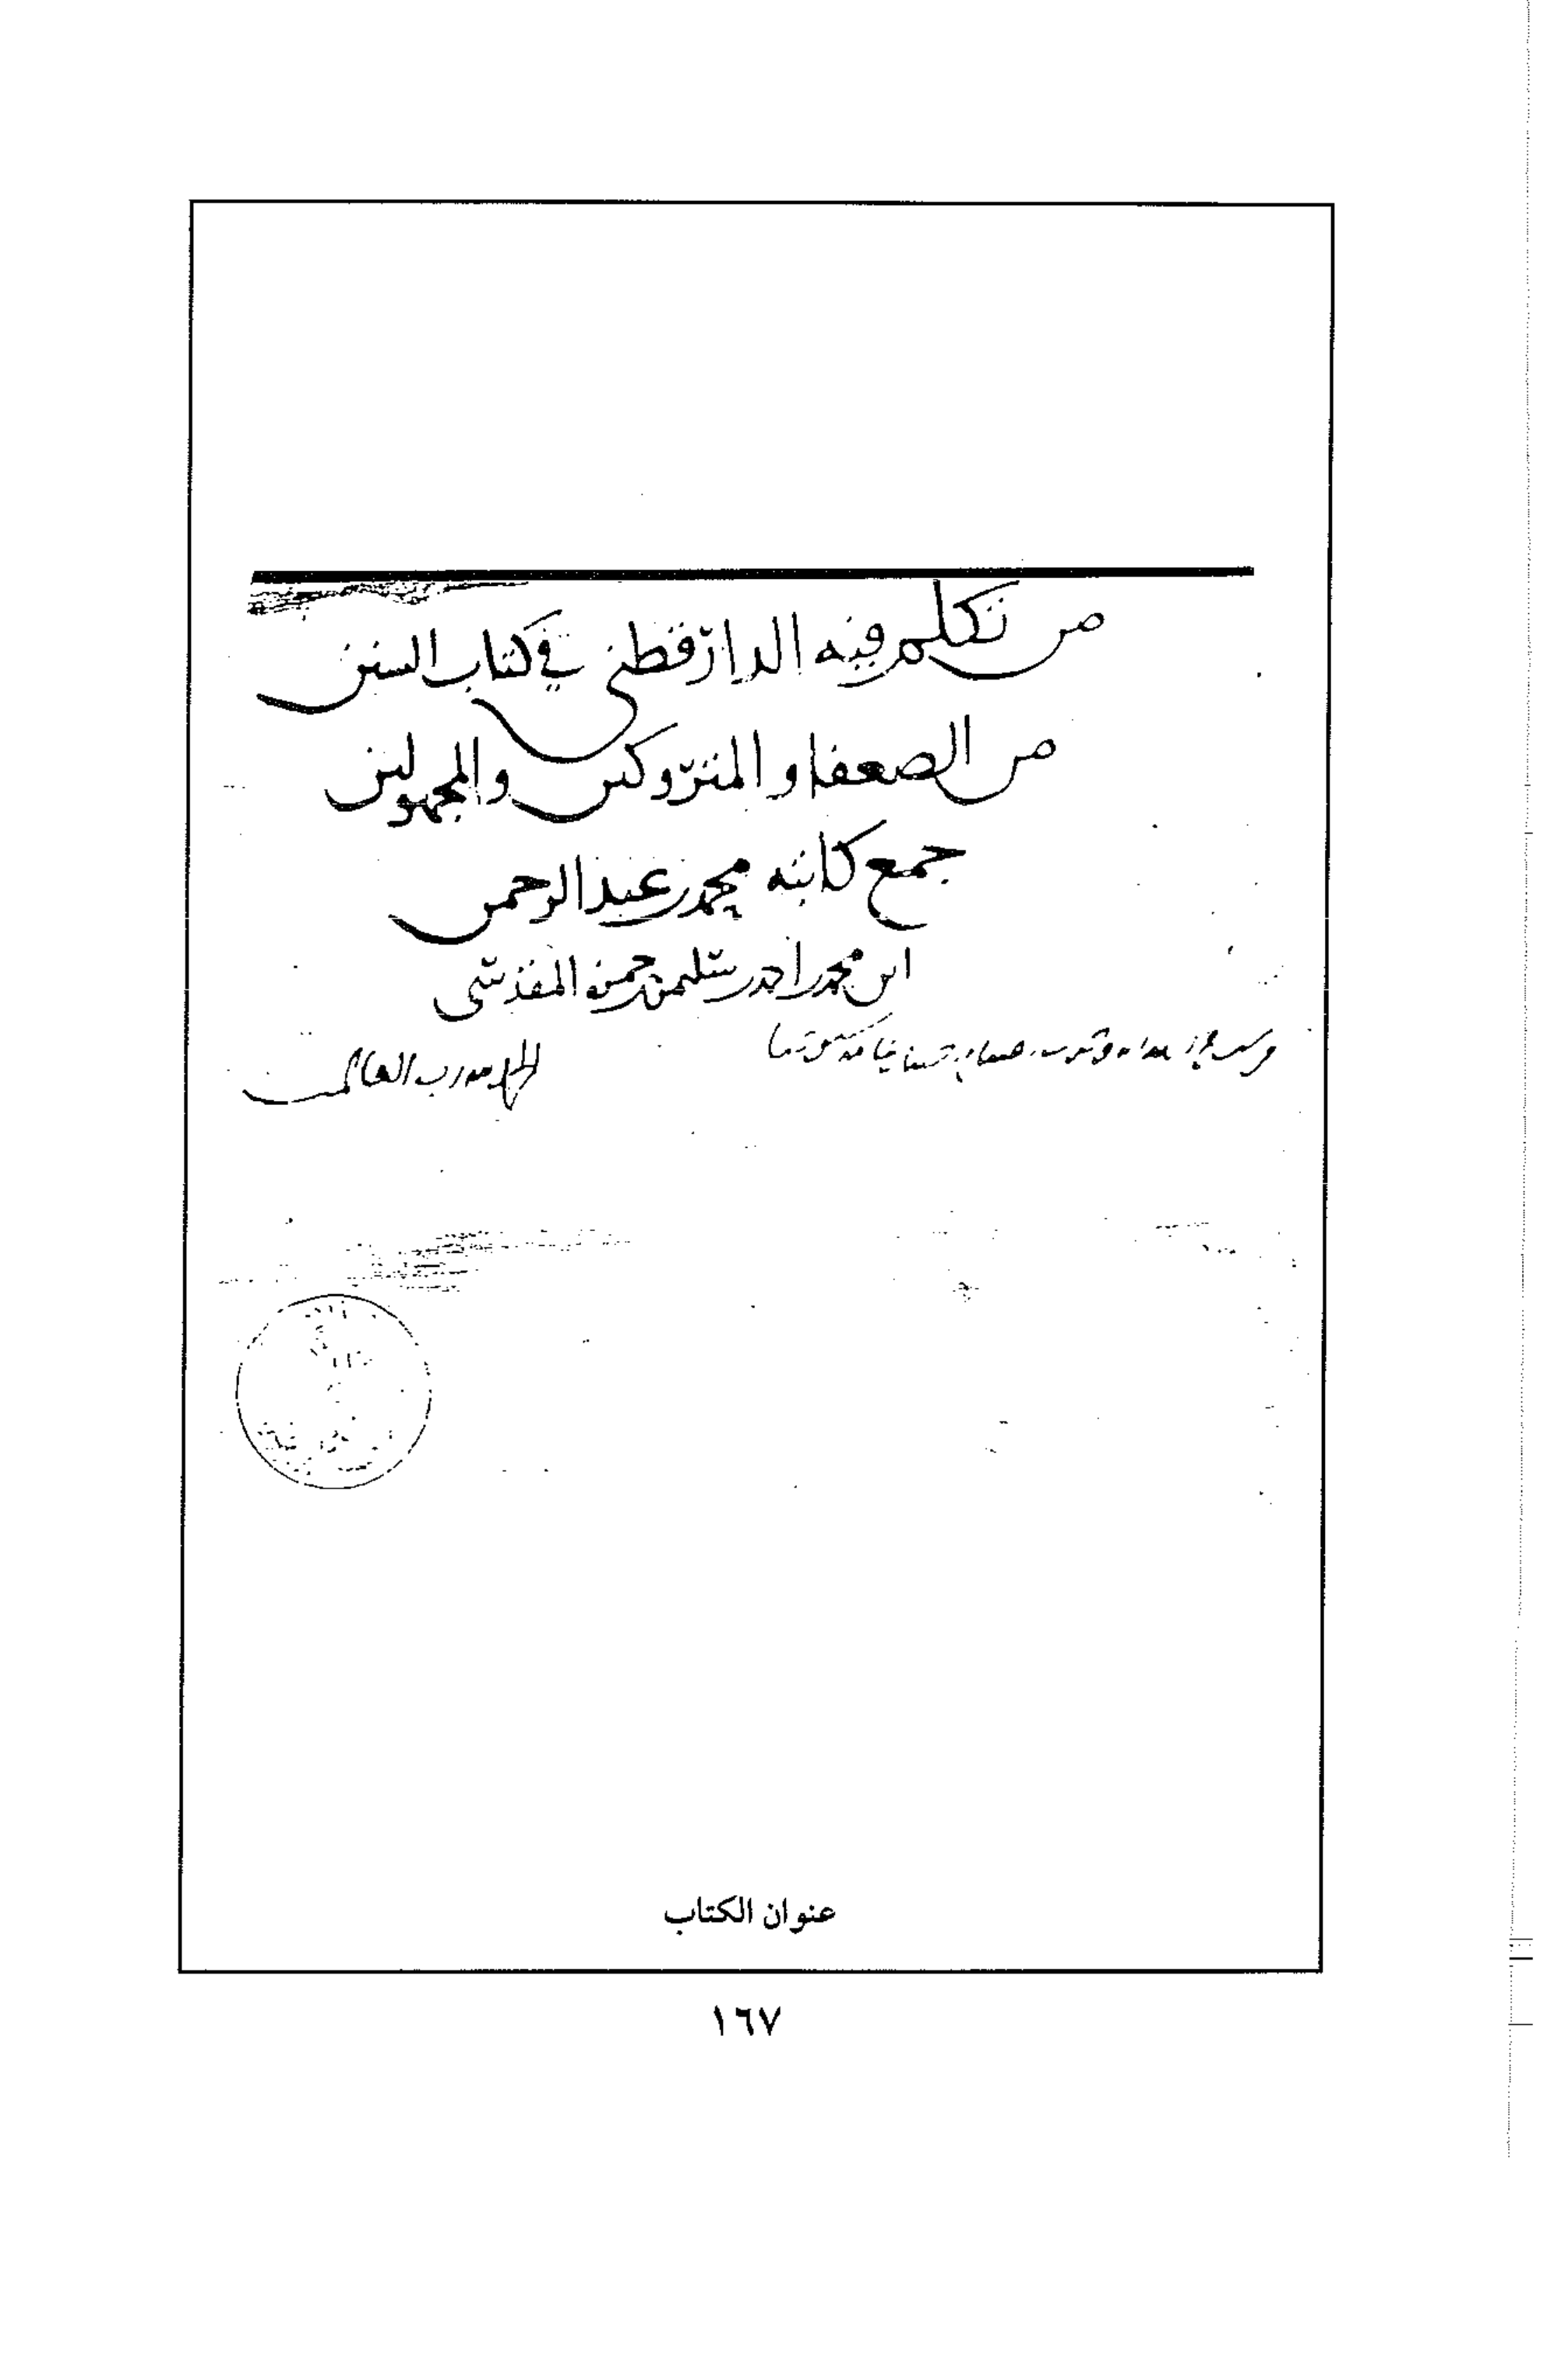 من تكلم فيه الدارقطني في كتاب السنن
من الضعفا والمتروكين والمجهولين
جمع كاتبه محمد بن عبد الرحمن
ابن محمد بن احمد بن سليمن بن حمزة المقدسي
الحمد لله رب العالمين
عنوان الكتاب
١٦٧